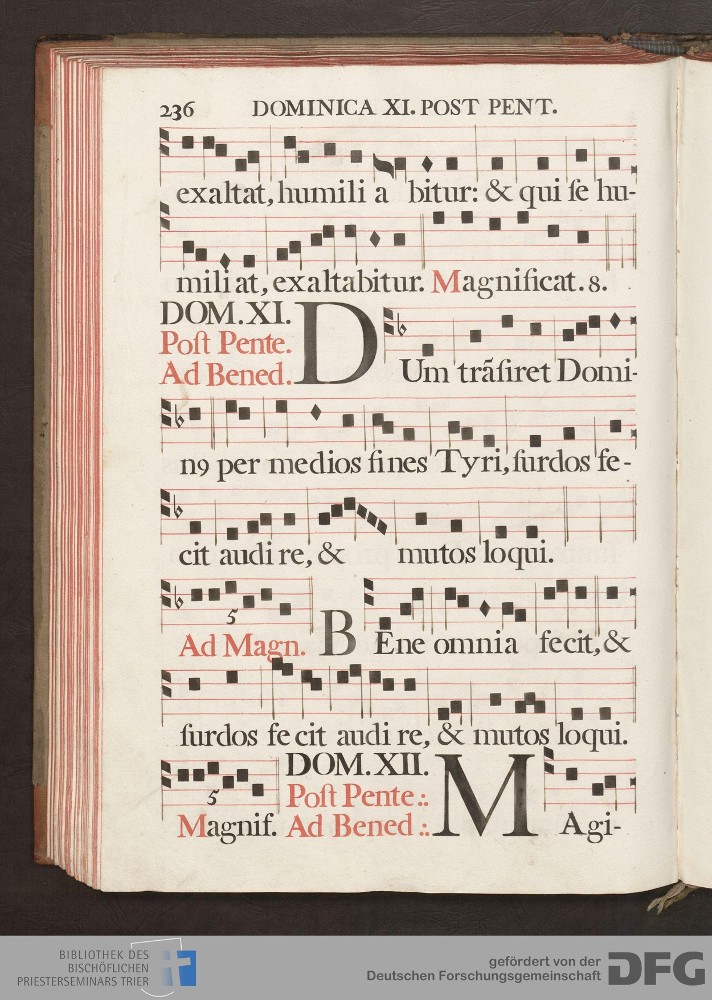 236 DOMINICA XI. POST PENT.
exaltat, humili a bitur: & qui ſe hu-
mili at, exaltabitur. Magnificat. 8.
DOM. XI.
Poſt Pente.
Ad Bened. DUm trãſiret Domi-
n9 per medios fines Tyri, ſurdos fe-
cit audi re, & mutos loqui.
5
Ad Magn. BEne omnia fecit, &
ſurdos fe cit audi re, & mutos loqui.
5
DOM. XII.
Poſt Pente :.
Magnif. Ad Bened :. MAgi-
BIBLIOTHEK DES
BISCHÖFLICHEN
PRIESTERSEMINARS TRIER
gefördert von der
Deutschen Forschungsgemeinschaft DFG